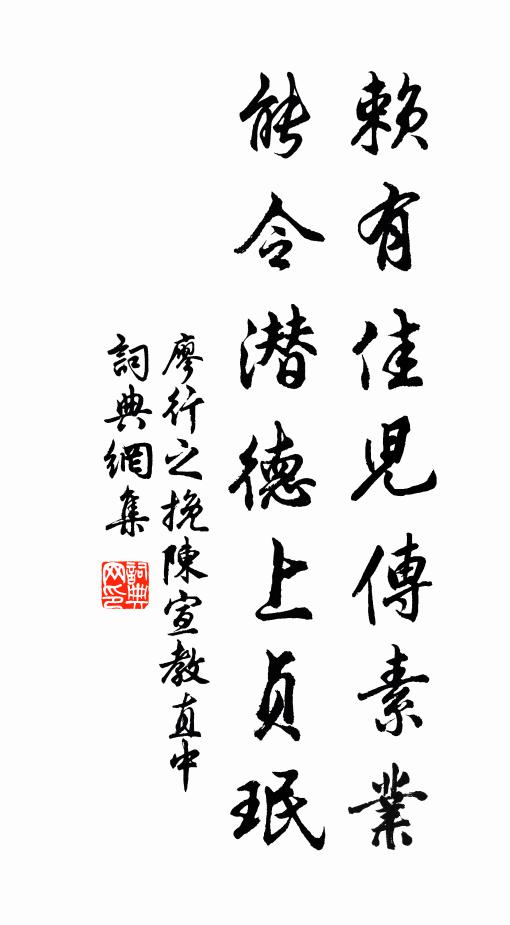 賴有佳児傳素業
能令潜德上貞珉
廖行之挽陳宣教直中
詞典網集
詞典网印